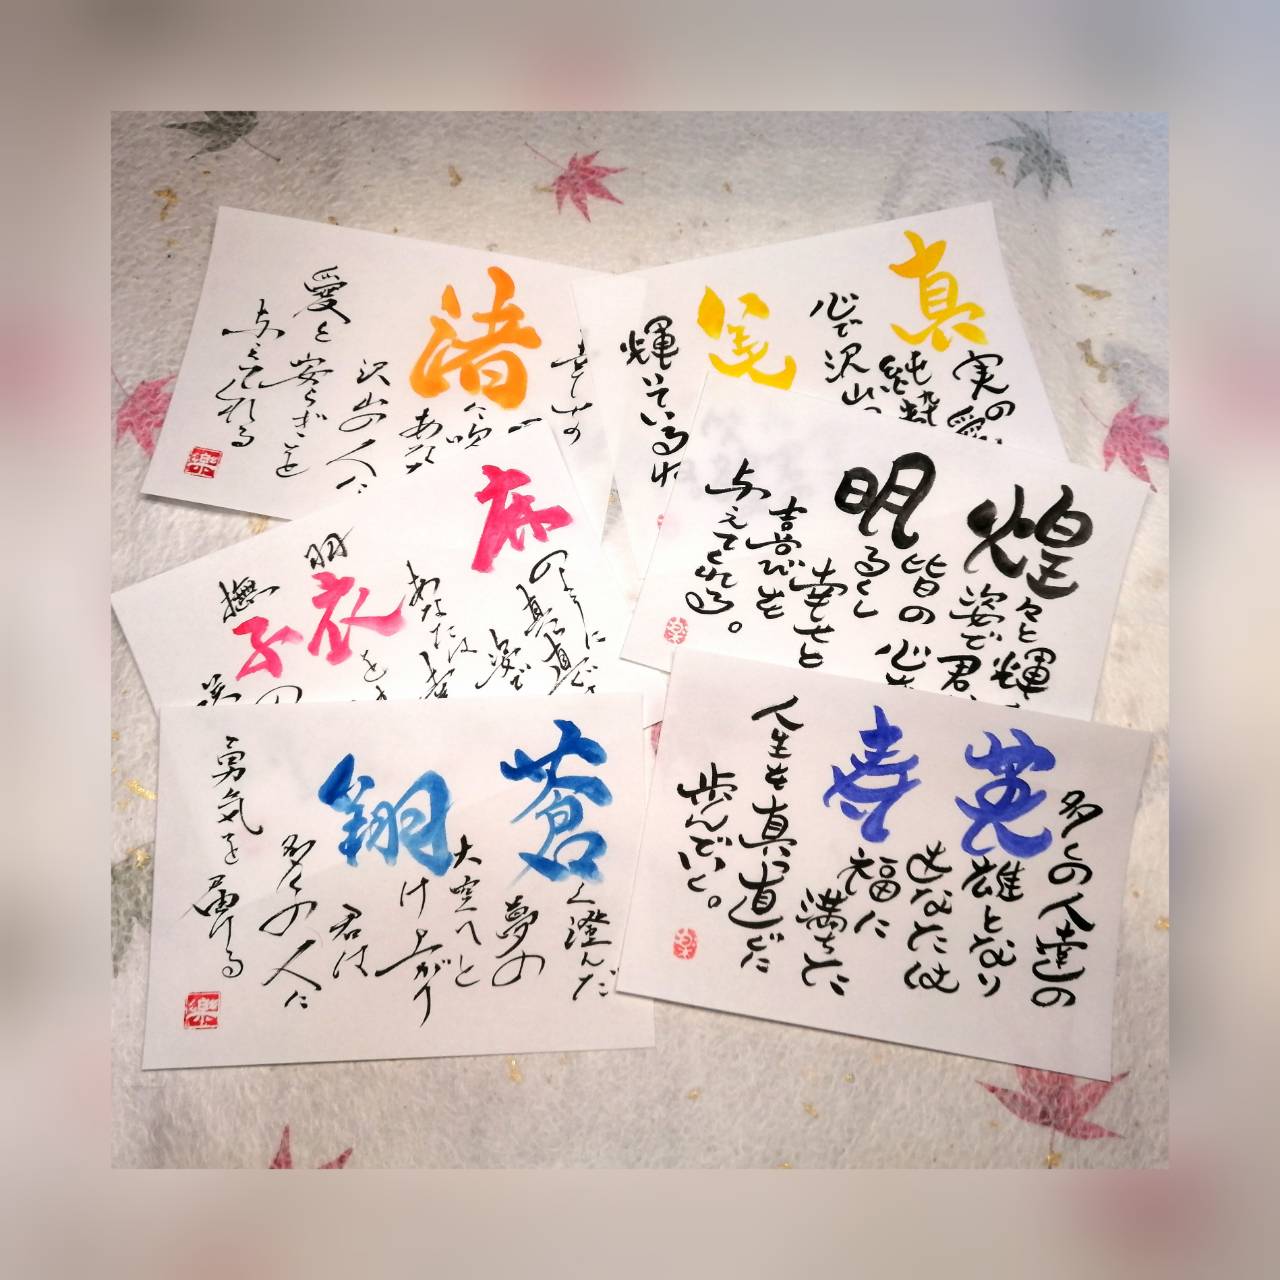 幸せの
く吹
渚
あな
沢山の人に
愛と安らぎを
与えてくれる
真
実の愛
純粋
心で沢山
笑
輝いている
煌
々と輝
姿で君
皆の心を
明
るくし
幸せと
喜びを
与えてくれる。
麻
のように
真っ直ぐ
姿で
あなたは
羽
衣
を
撫
子
の
蒼
く澄んだ
夢の
大空へと
翔
け上がり
君は
多くの人に
勇気を
届ける
多くの人達の
英
雄となり
あなたは
寿
福に
満ちた
人生を真っ直ぐに
歩んでいく。